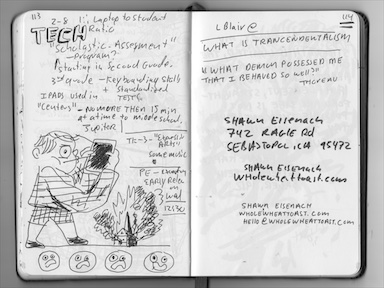 113
2-8 1:1 Laptop to student
TECH Ratio
"Scholastic Assessment"
-Program?
Starting in Second Grade.
3rd grade - Keyboarding skills
IPADS used in + Standardized
"Centers" TESTS
- NO MORE THEN 15 MIN
at a time to middle school,
Jupiter
TK-3- "
ARTS"
Some music
PE -
EARLY Release
on
Wed
1:30
114
LBlair@
WHAT IS TRANCENDENTALISM
"WHAT DEMON POSSESSED ME
THAT I BEHAVED SO WELL?"
THOREAU
SHAWN EISENACH
742 RAGLE RD
SEBASTOPOL, CA 95472
SHAWN EISENACH
WHOLEWHEATTOAST.COM
SHAWN EISENACH
WHOLEWHEATTOAST.COM
HELLO@WHOLEWHEATTOAST.COM